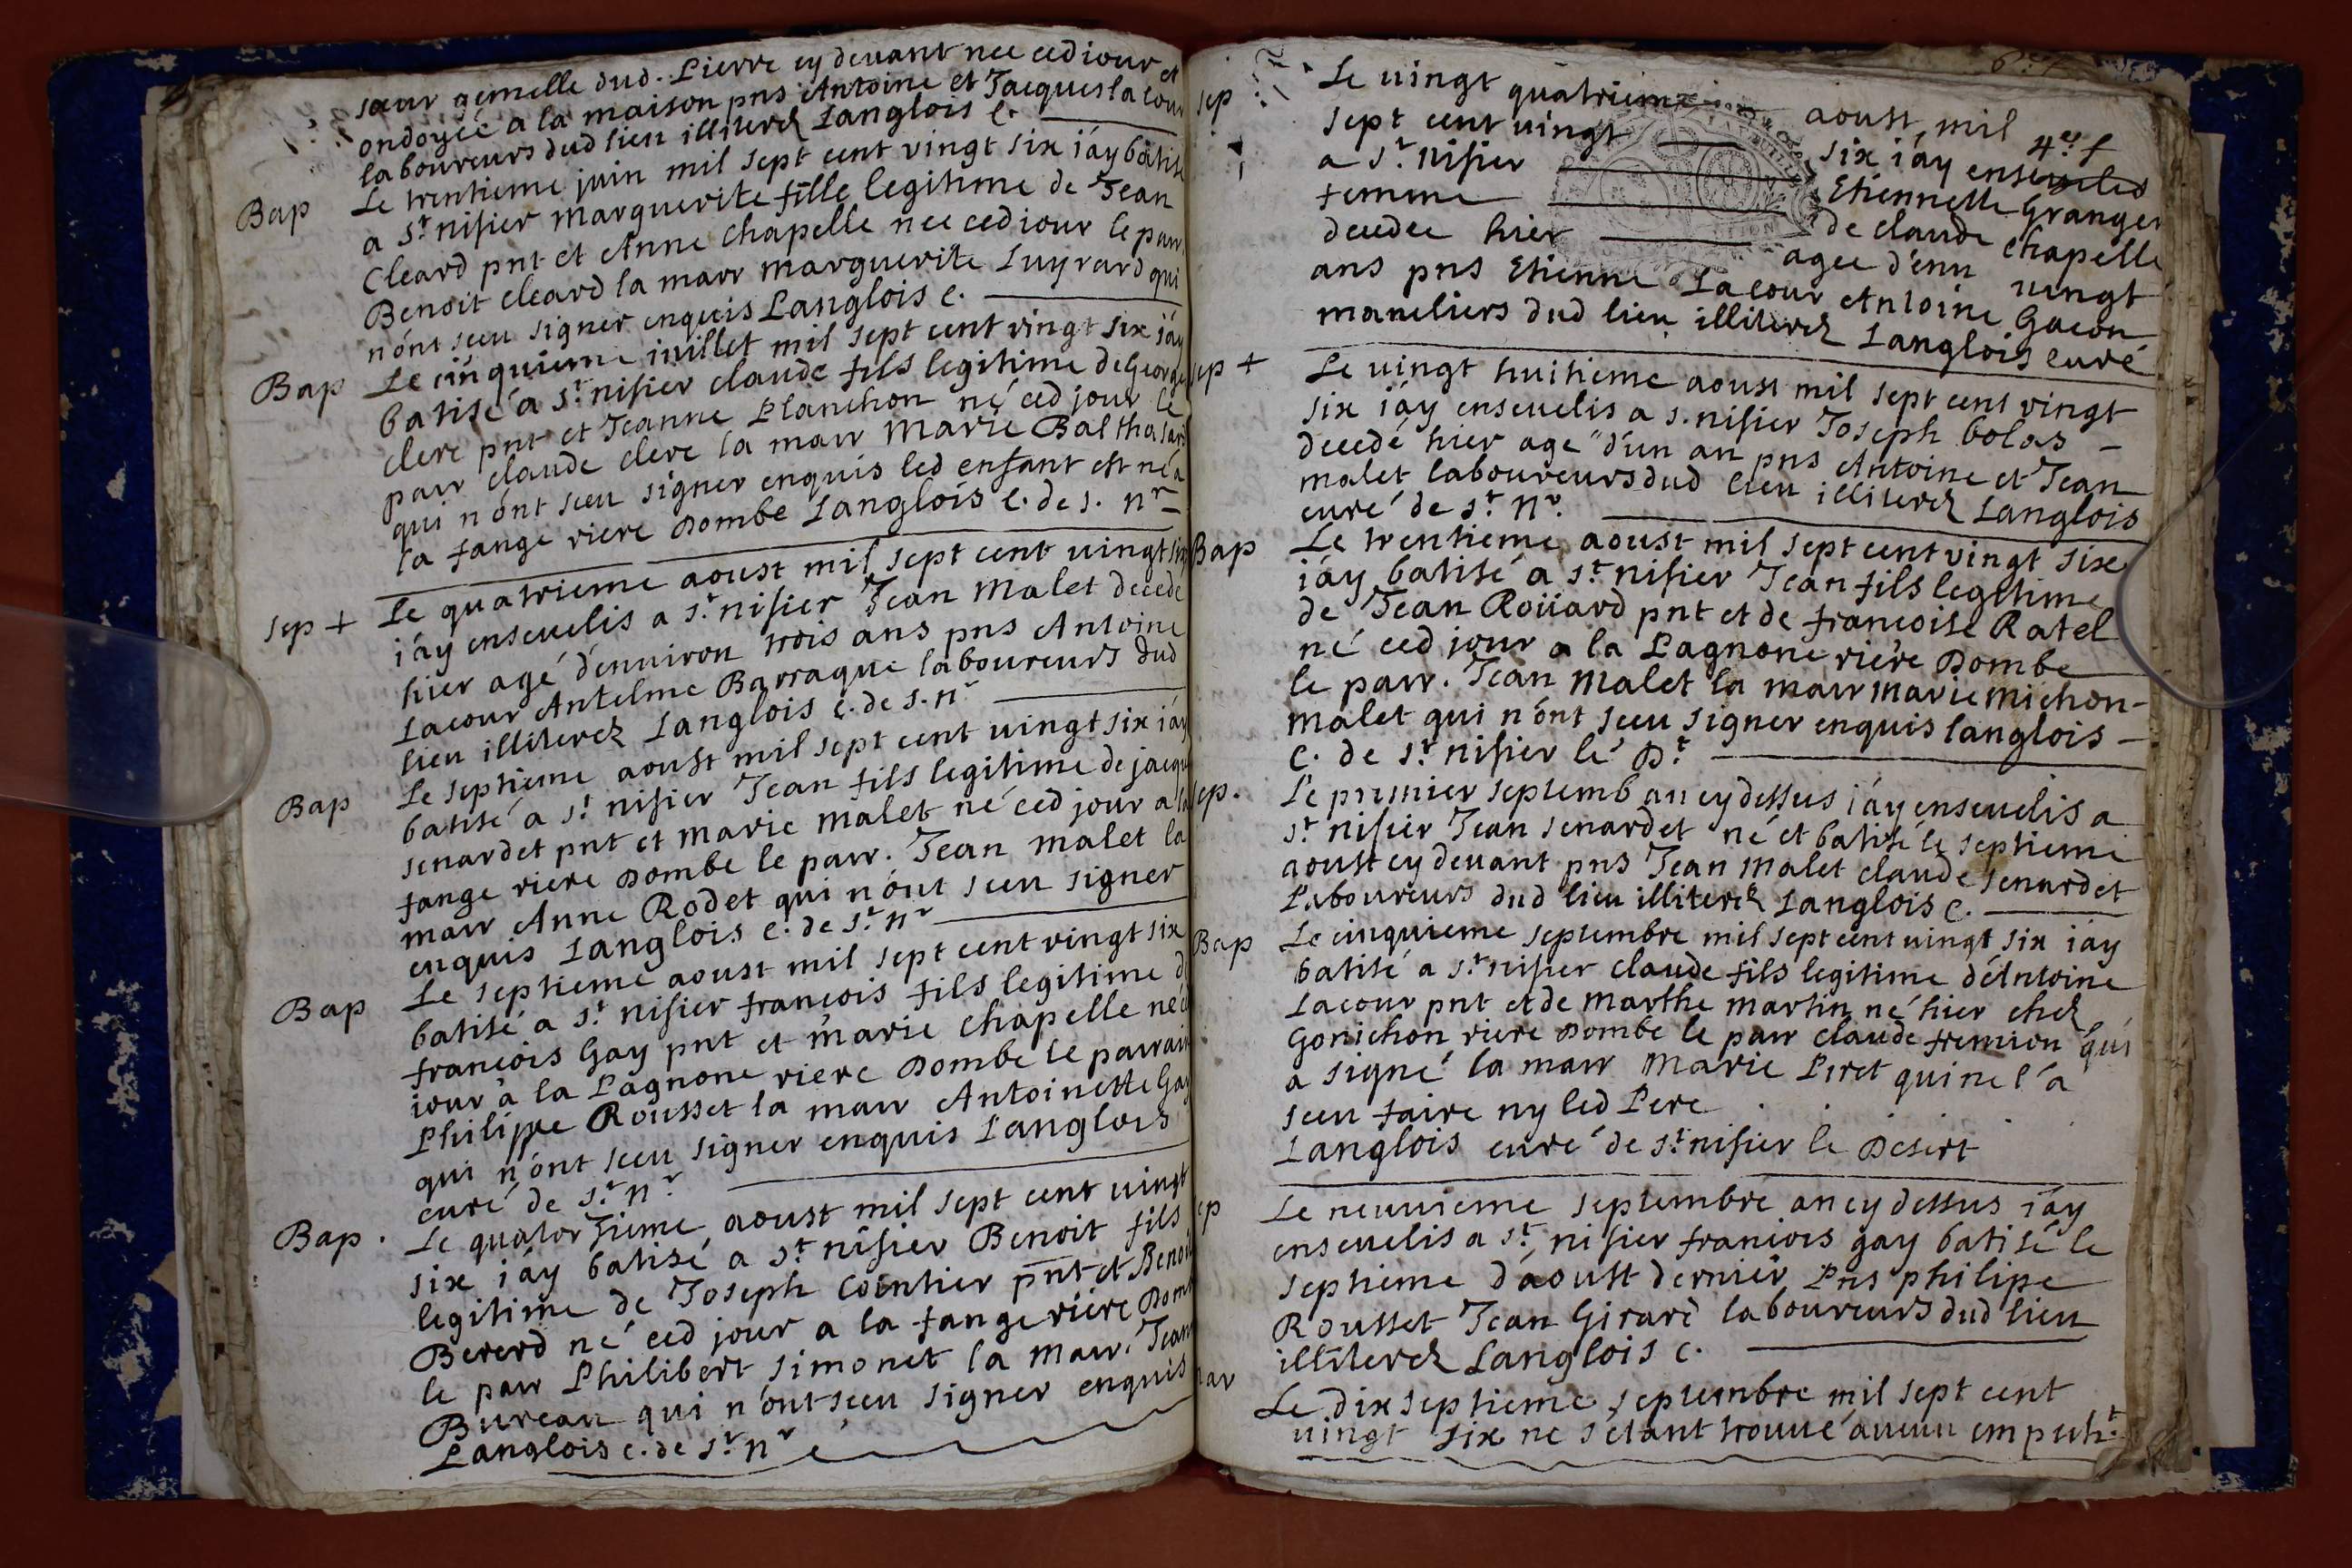 sœur gemelle dud. Pierre cy devant nee ced iour et
ondoyée a la maison pns Antoine et Jacques la cour
laboureurs dud lieu illiterez Langlois C.
Bap
Le trentieme juin mil sept cent vingt six i'ay batisé
a St. nisier Marguerite fille legitime de Jean
Cleard pnt et Anne chapelle nee ced iour le parr
Benoit cleard la marr Marguerite Luyrard qui
n'ont sceu signer enquis Langlois c.
Bap
Le cinquieme iuillet mil sept cent vingt six i'ay
batisé a St. nisier claude fils legitime de George
clere pnt et Jeanne Planchon né ced jour le
parr claude clere la marr Marie Balthasard
qui n'ont sceu signer enquis led enfant est né a
la fange riere Dombe Langlois C. de s. nr
sep +
Le quatrieme aoust mil sept cent vingt six
i'ay ensevelis a St. nisier Jean Malet decedé
hier agé d'enuiron trois ans pns Antoine
Lacour Antelme Barraque laboureurs dud
lieu illiterez Langlois C. de s. nr
Bap
Le septieme aoust mil sept cent vingt six i'ay
batisé a St. nisier Jean fils legitime de jacque
senardet pnt et Marie Malet né ced jour a la
fange riere Dombe le parr. Jean Malet la
marr Anne Rodet qui n'ont sceu signer
enquis Langlois c. de St. nr
Bap
Le septieme aoust mil sept cent vingt six
batisé a St. nisier françois fils legitime de
françois Gay pnt et marie chapelle né ced
iour a la Pagnone riere Dombe le parrain
Philippe Rousset la marr Antoinette Gay
qui n'ont sceu signer enquis Langlois
curé de St. nr
Bap.
Le quatorzieme aoust mil sept cent vingt
six i'ay batisé a St. nisier Benoit fils
legitime de Joseph Cointier pnt et Benoite
Bererd né ced jour a la fange riere Dombe
le parr Philibert Simonet la Marr. Jean
Bureau qui n'ont sceu signer enquis
Langlois c. de St. nr
4er f
sep
Le vingt quatrieme aoust mil
sept cent vingt six i'ay ensevelis
a St. nisier Etiennette Granger
femme de claude chapelle
decedee hier agee d'enu vingt
ans pns Etienne Lacour Antoine Gacon
maneliers dud lieu illiterez Langlois curé
sep +
Le vingt huitieme aoust mil sept cent vingt
six i'ay ensevelis a s. nisier Joseph bolas
decedé hier age d'un an pns Antoine et Jean
malet laboureurs dud lieu illiterez Langlois
curé de St. Nr.
Bap
Le trentieme aoust mil sept cent vingt six
i'ay batisé a St. nisier Jean fils legitime
de Jean Roüard pnt et de francoise Ratel
né ced jour a la Pagnone riere Dombe
le parr. Jean Malet la marr marie michon-
malet qui n'ont sceu signer enquis langlois
C. de St. nisier le Dt.
sep.
Le premier septemb an cy dessus i'ay ensevelis a
St. nisier Jean senardet né et batisé le septieme
aoust cy devant pns Jean Malet claude senardet
Laboureurs dud lieu illiterez Langlois C.
Bap
Le cinquieme septembre mil sept cent vingt six iay
batisé a St. nisier claude fils legitime d'Antoine
Lacour pnt et de Marthe Martin né hier chez
Gonichon riere Dombe le parr claude fremion qui
a signé la marr Marie Piret qui ne l'a
sceu faire ny led Pere
Langlois curé de St. nisier le Desert
ep
Le neuvieme septembre an cy dessus i'ay
ensevelis a St. nisier francois gay batisé le
septieme d'aoust dernier Pns philippe
Rousset Jean Girard laboureurs dud lieu
illiterez Langlois c.
ar
Le dix septieme septembre mil sept cent
vingt six ne s'etant trouué aucun empecht.